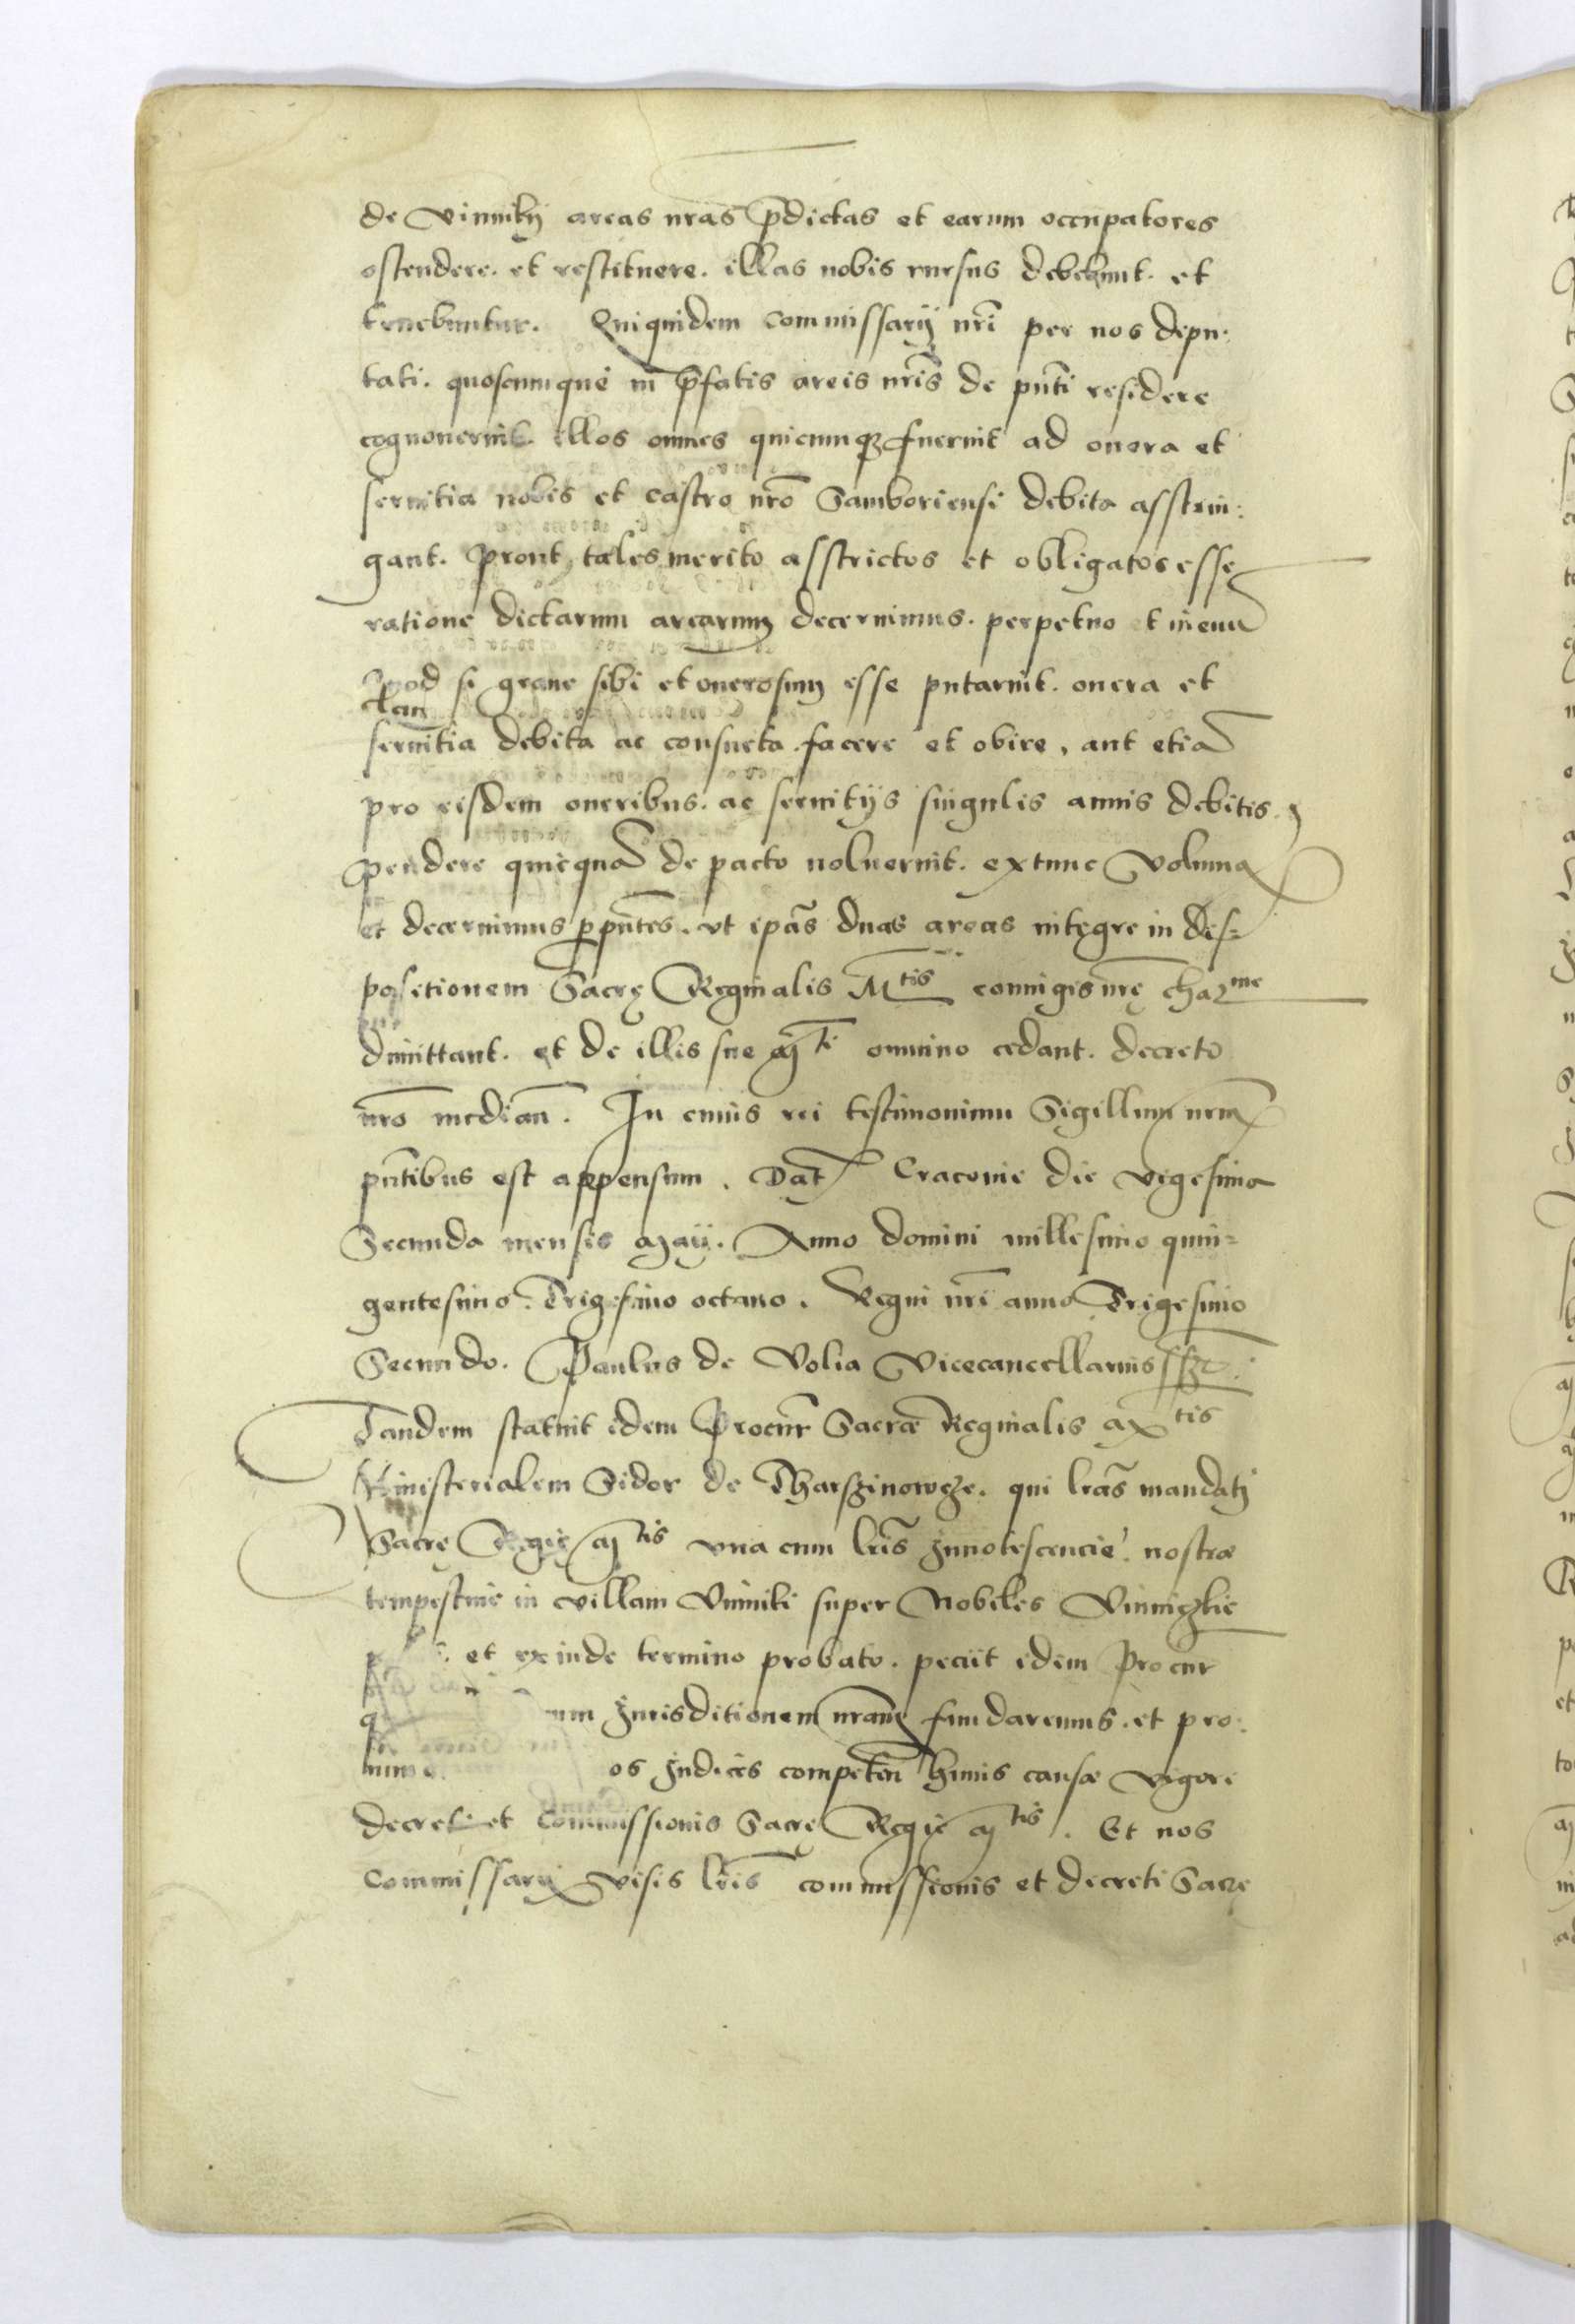 de Vinniky areas nras p̄dictas et earum occupatores
ostendere. et restituere. illas nobis rursus debebunt. et
tenebuntur. Qui quidem commissarij nr̄i per nos depu:
tati. quoscumque in p̄fatis areis nrīs de pn̄ti residere
cognouerint. illos omnes quicumqȝ fuerint ad onera et
seruitia nobis et castro nrō Samboriensi debita asstrin:
gant. prout tales merito asstrictos et obligatos esse
ratione dictarum arearum decernimus. perpetuo et in euū
Quod si graue sibi et onerosum esse putarint. onera et
seruitia debita ac consueta facere et obire, aut etiā
pro eisdem oneribus. ac seruitijs singulis annis debitis.
pendere quicquā de pacto noluerint. extunc Volumꝯ
et decernimus p pn̄tes. vt ipās duas areas integre in dis=
positionem Sacrę Reginalis Mtis coniugis nrę̄ chaRme
dimittant. et de illis sue Mti omnino cedant. decreto
nrō median̄. In cuius rei testimonium Sigillum nrm̄
pn̄tibus est appensum. Dat̄ Cracouie die vigesima
Secunda mensis Maij. Anno domini millesimo quin=
gentesimo. Trigesimo octauo. Regni nrī anno Trigesimo
Secundo. Paulus de Volia Vicecancellarius sszt.
Tandem statuit idem Procur̄ Sacræ Reginalis Mtis
Ministerialem Sidor de Tharszinowcze. qui lrās mandatj
Sacrę Regię Mtis vna cum lrīs Innotescencie nostræ
tempestiue in villam Vinniki super Nobiles Vinniczkie
et exinde termino probato. peciit idem Procur̄
um Jurisditionem nram̄ fundaremus. et pro:
os Judices competen̄ huiꝰ causæ vigore
decreti et Commissionis Sacrę Regię Mtis. Et nos
Commissarij visis lrīs commissionis et decreti Sacrę